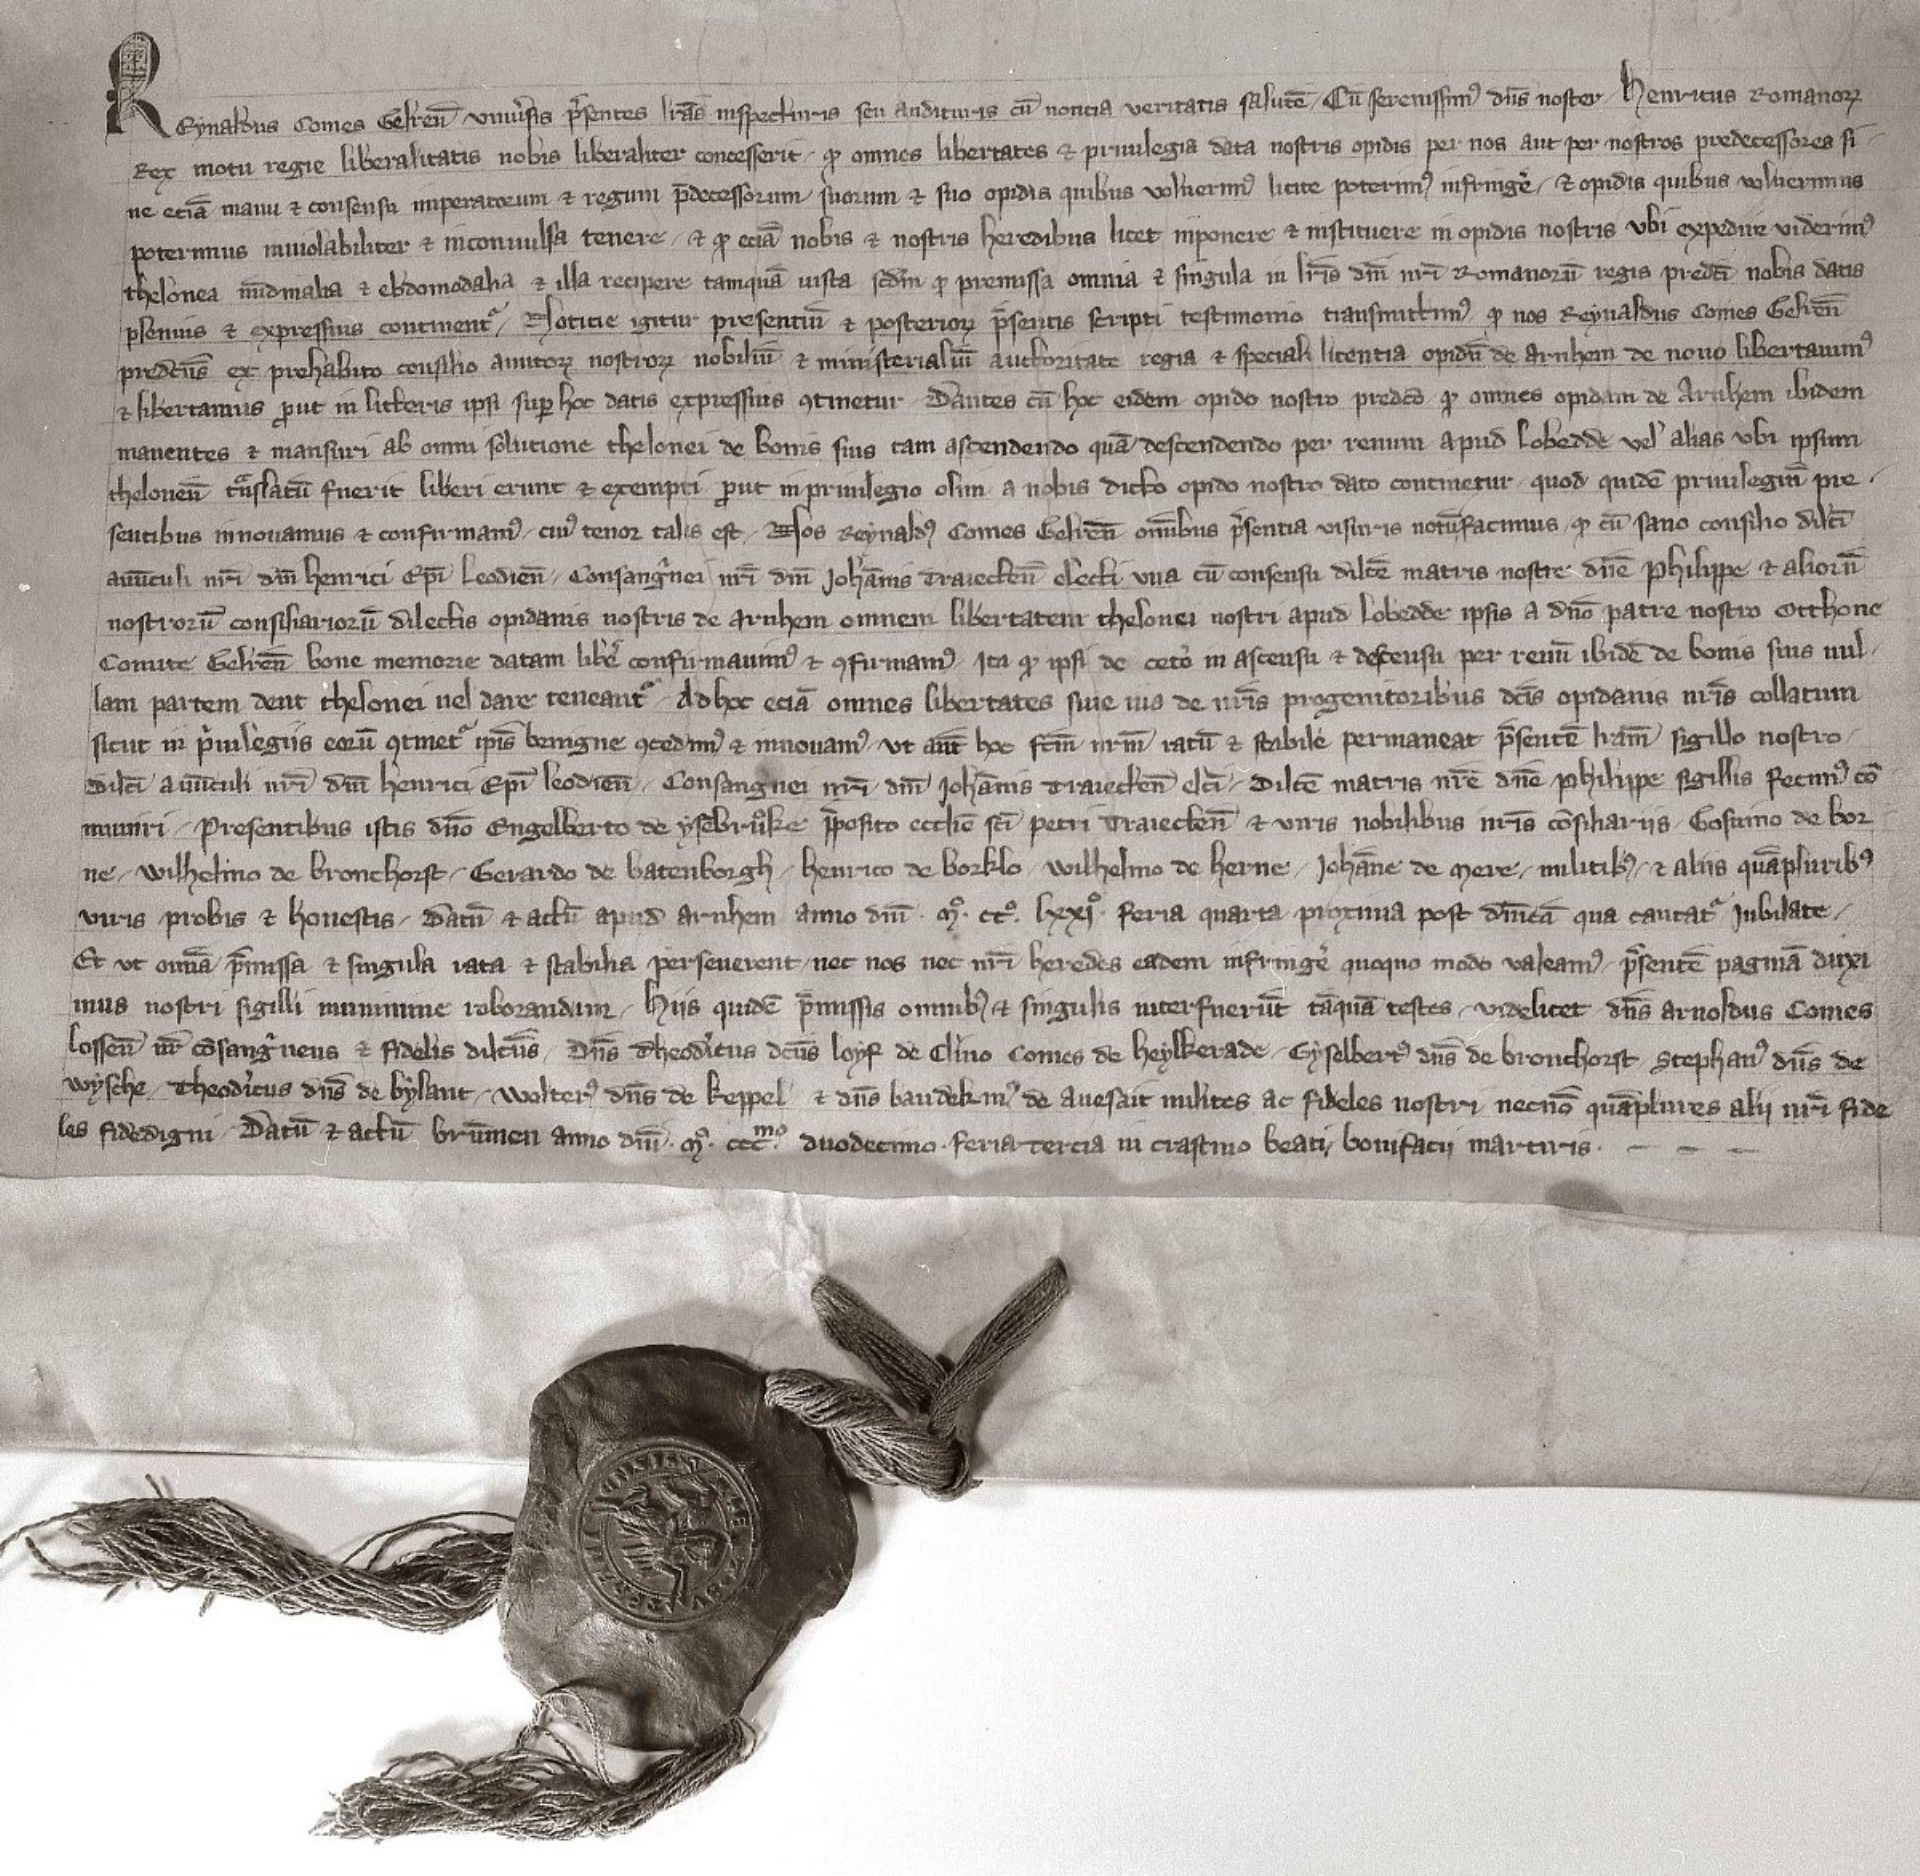 REynaldus Comes Gelreñ vniu͛sis p͛sentes lr̃as inspecturis seu audituris cū noticia veritatis salutē / Cū serenissimꝰ dñs noster Henricus Romanorꝝ
Rex motu regie liberalitatis nobis liberaliter concesserit / ꝙ omnes libertates ⁊ priuilegia data nostris opidis per nos aut per nostros predecessores si-
ne eciā manu ⁊ consensu imperatorum ⁊ regum p̄decessorum suorum ⁊ suo opidis quibus voluerimꝰ licite poterimꝰ infringe͛ / ⁊ opidis quibus voluerimus
poterimus inuiolabiliter ⁊ inconuulsa tenere / ⁊ ꝙ eciā nobis ⁊ nostris heredibus licet inponere ⁊ instituere in opidis nostris vbi expedire viderimꝰ
thelonea nūdinalia ⁊ ebdomodalia ⁊ illa recipere tamquā iusta scdm ꝙ premissa omnia ⁊ singula in lr̃is dñi nr̃i Romanorū regis predc̃i nobis datis
plenius ⁊ expressius continent᷑ / Noticie igitur presentiū ⁊ posteriorꝝ p͛sentis scripti testimonio transmittimꝰ ꝙ nos Reynaldus Comes Gelreñ
predc̃us ex prehabito consilio amicorꝝ nostrorꝝ nobiliū ⁊ ministerialiū auctoritate regia ⁊ speciali licentia opidū de arnhem de nouo libertauimꝰ
⁊ libertamus ꝓut in litteris ipsi suꝑ hoc datis expressius ꝯtinetur / Dantes cū hoc eidem opido nostro predc̃o ꝙ omnes opidani de Arnhem ibidem
manentes ⁊ mansuri ab omni solutione thelonei de bonis suis tam ascendendo quā descendendo per renum apud Lobedde vel alias vbi ipsum
theloneū t͛nslatū fuerit liberi erunt ⁊ exempti ꝓut in priuilegio olim a nobis dicto opido nostro dato continetur quod quidē priuilegiū pre-
sentibus innouamus ⁊ confirmamꝰ / cuiꝰ tenor talis est / Nos Reynaldꝰ Comes Gelreñ om̄ibus p͛sentia visuris notū facimus / ꝙ cū sano consilio dilc̃i
auūculi nr̃i dñi henrici Ep̃i Leodieñ / Consang͛nei nr̃i dñi Joh̃annis Traiecteñ electi vna cū consensu dilc̃e matris nostre dñe Philippe ⁊ aliorū
nostrorū consiliariorū dilectis opidanis nostris de Arnhem omnem libertatem thelonei nostri apud Lobedde ipsis a dño patre nostro Otthone
Comite Gelreñ bone memorie datam libe͛ confirmauimꝰ ⁊ ꝯfirmamꝰ / Ita ꝙ ipsi de cete͛o in ascensu ⁊ descensu per renū ibidē de bonis suis nul-
lam partem dent thelonei uel dare teneant᷑ / Ad hoc eciā omnes libertates siue ius de nr̃is progenitoribus dc̃is opidanis nr̃is collatum
sicut in p͛uilegiis eorū ꝯtinet᷑ ip̃is benigne ꝯcedimꝰ ⁊ innouamꝰ / vt aut̃ hoc fc̃m nr̃m ratū ⁊ stabile permaneat p͛sentē lr̃am sigillo nostro /
dilc̃i auūculi nr̃i dñi henrici Ep̃i leodieñ / Consang͛nei nr̃i dñi Joh̃annis Traiecteñ elc̃i / Dilc̃e matris nr̃e dñe Philippe sigillis fecimꝰ cō-
muniri / Presentibus istis dño Engelberto de ysebrůke p͛posito ecclẽ sc̃i petri Traiecteñ ⁊ viris nobilibus nr̃is cōsiliariis / Gosuino de bor
ne / Wilhelmo de bronchorst / Gerardo de batenborgh / Henrico de borklo / Wilhelmo de herne / Joh̃anne de Mere / militibꝰ / ⁊ aliis quāpluribꝰ
viris probis ⁊ honestis / Datū ⁊ actū apud arnhem anno dñi · mͦ · ccͦ · lxxiͦ · feria quarta proxima post dñicā qua cantat᷑ Jubilate /
Et vt om̃ia p͛missa ⁊ singula rata ⁊ stabilia perseuerent / nec nos nec nr̃i heredes eadem infringe͛ quoquo modo valeamꝰ / p͛sentē paginā duxi
mus nostri sigilli munimine roborandam / Hiis quidē p͛missis omnibꝰ ⁊ singulis interfuerūt tāquā testes / videlicet dñs arnoldus Comes
Losseñ nr̃ cōsang͛neus ⁊ fidelis dilc̃us / Dñs Theodicus dc̃us loyf de Cliuo Comes de heylkerade / Gyselbertꝰ dñs de bronchorst Stephanꝰ dñs de
wysche / Theodicus dñs de bylant / Wolterꝰ dñs de keppel ⁊ dñs baudekinꝰ de auesait milites ac fideles nostri necnō quāplures alii nr̃i fide
les fidedigni / Datū ⁊ actū brūmen anno dñi · mͦ · cccᵐͦ · duodecimo · feria tercia in crastino beati bonifacii martiris · — — —